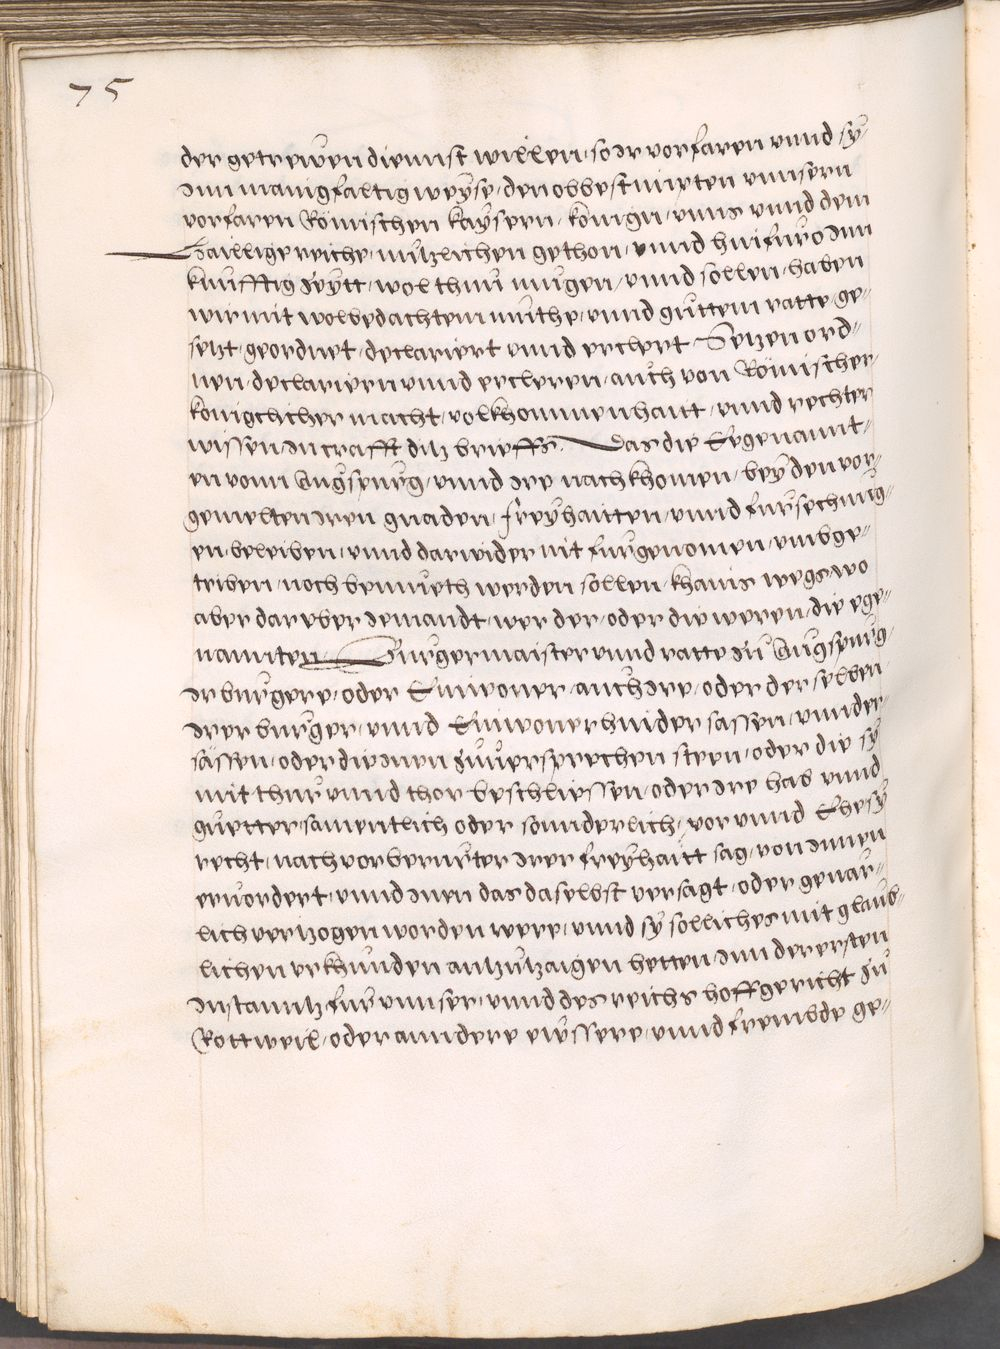 75
der getrewen diennst willen, so Ir vorfaren vnnd sÿ
Inn manigfaltig weÿse, den obbestimpten vnnsern
vorfaren Römischen kaÿsern, könign, vnns vnnd dem
Haillige reiche, nützlichen gethon, vnnd hinfuro Inn
kunfftig Zeÿtt, wol thun mugen, vnnd sollen, haben
wir mit wolbedachtem muthe, vnnd guttem ratte, ge=
setzt, geordnet, declariert vnnd erclert Setzen ord=
nen, declariern vnnd ercleren, auch von Römischer
königclicher macht, volkhommenhaitt, vnnd rechter
wissen, In crafft ditz brieffs. Das die Egenannt=
en vonn Augspurg, vnnd Ire nachkhomen, beÿ den vor=
gemelten Iren gnaden, freÿhaitten, vnnd fursechung=
en, beleiben, vnnd darwider nit furgenomen, vmbge=
triben, noch bemueth werden sollen, khains wegs wo
aber dareber Iemandt, wer der, oder die weren, die ege=
nannten, Burgermaister vnnd ratte zu Augspurg
Ir burgere, oder Einwoner, auch Ire, oder derselben
Irer burger, vnnd Einwoner hinder sassen, vnnder
sässen, oder die Inen zuuersprechen steen, oder die sÿ
mit thur vnnd thor beschliessen, oder Ire hab vnnd
guetter, samentlich oder sonnderlich, vor vnnd Ehe sÿ
recht, nach vorberurter Irer freÿhaitt sag, von Innen
eruordert, vnnd Inen das daselbst versagt, oder geuar=
lich vertzogen worden were, vnnd sÿ solliches mit glaub=
lichen vrkhunden antzutzaigen hetten, Inn der ersten
Instanntz, fur vnnser, vnnd des reichs hoffgericht zu
Rottweil, oder anndere eussere, vnnd frembde ge=